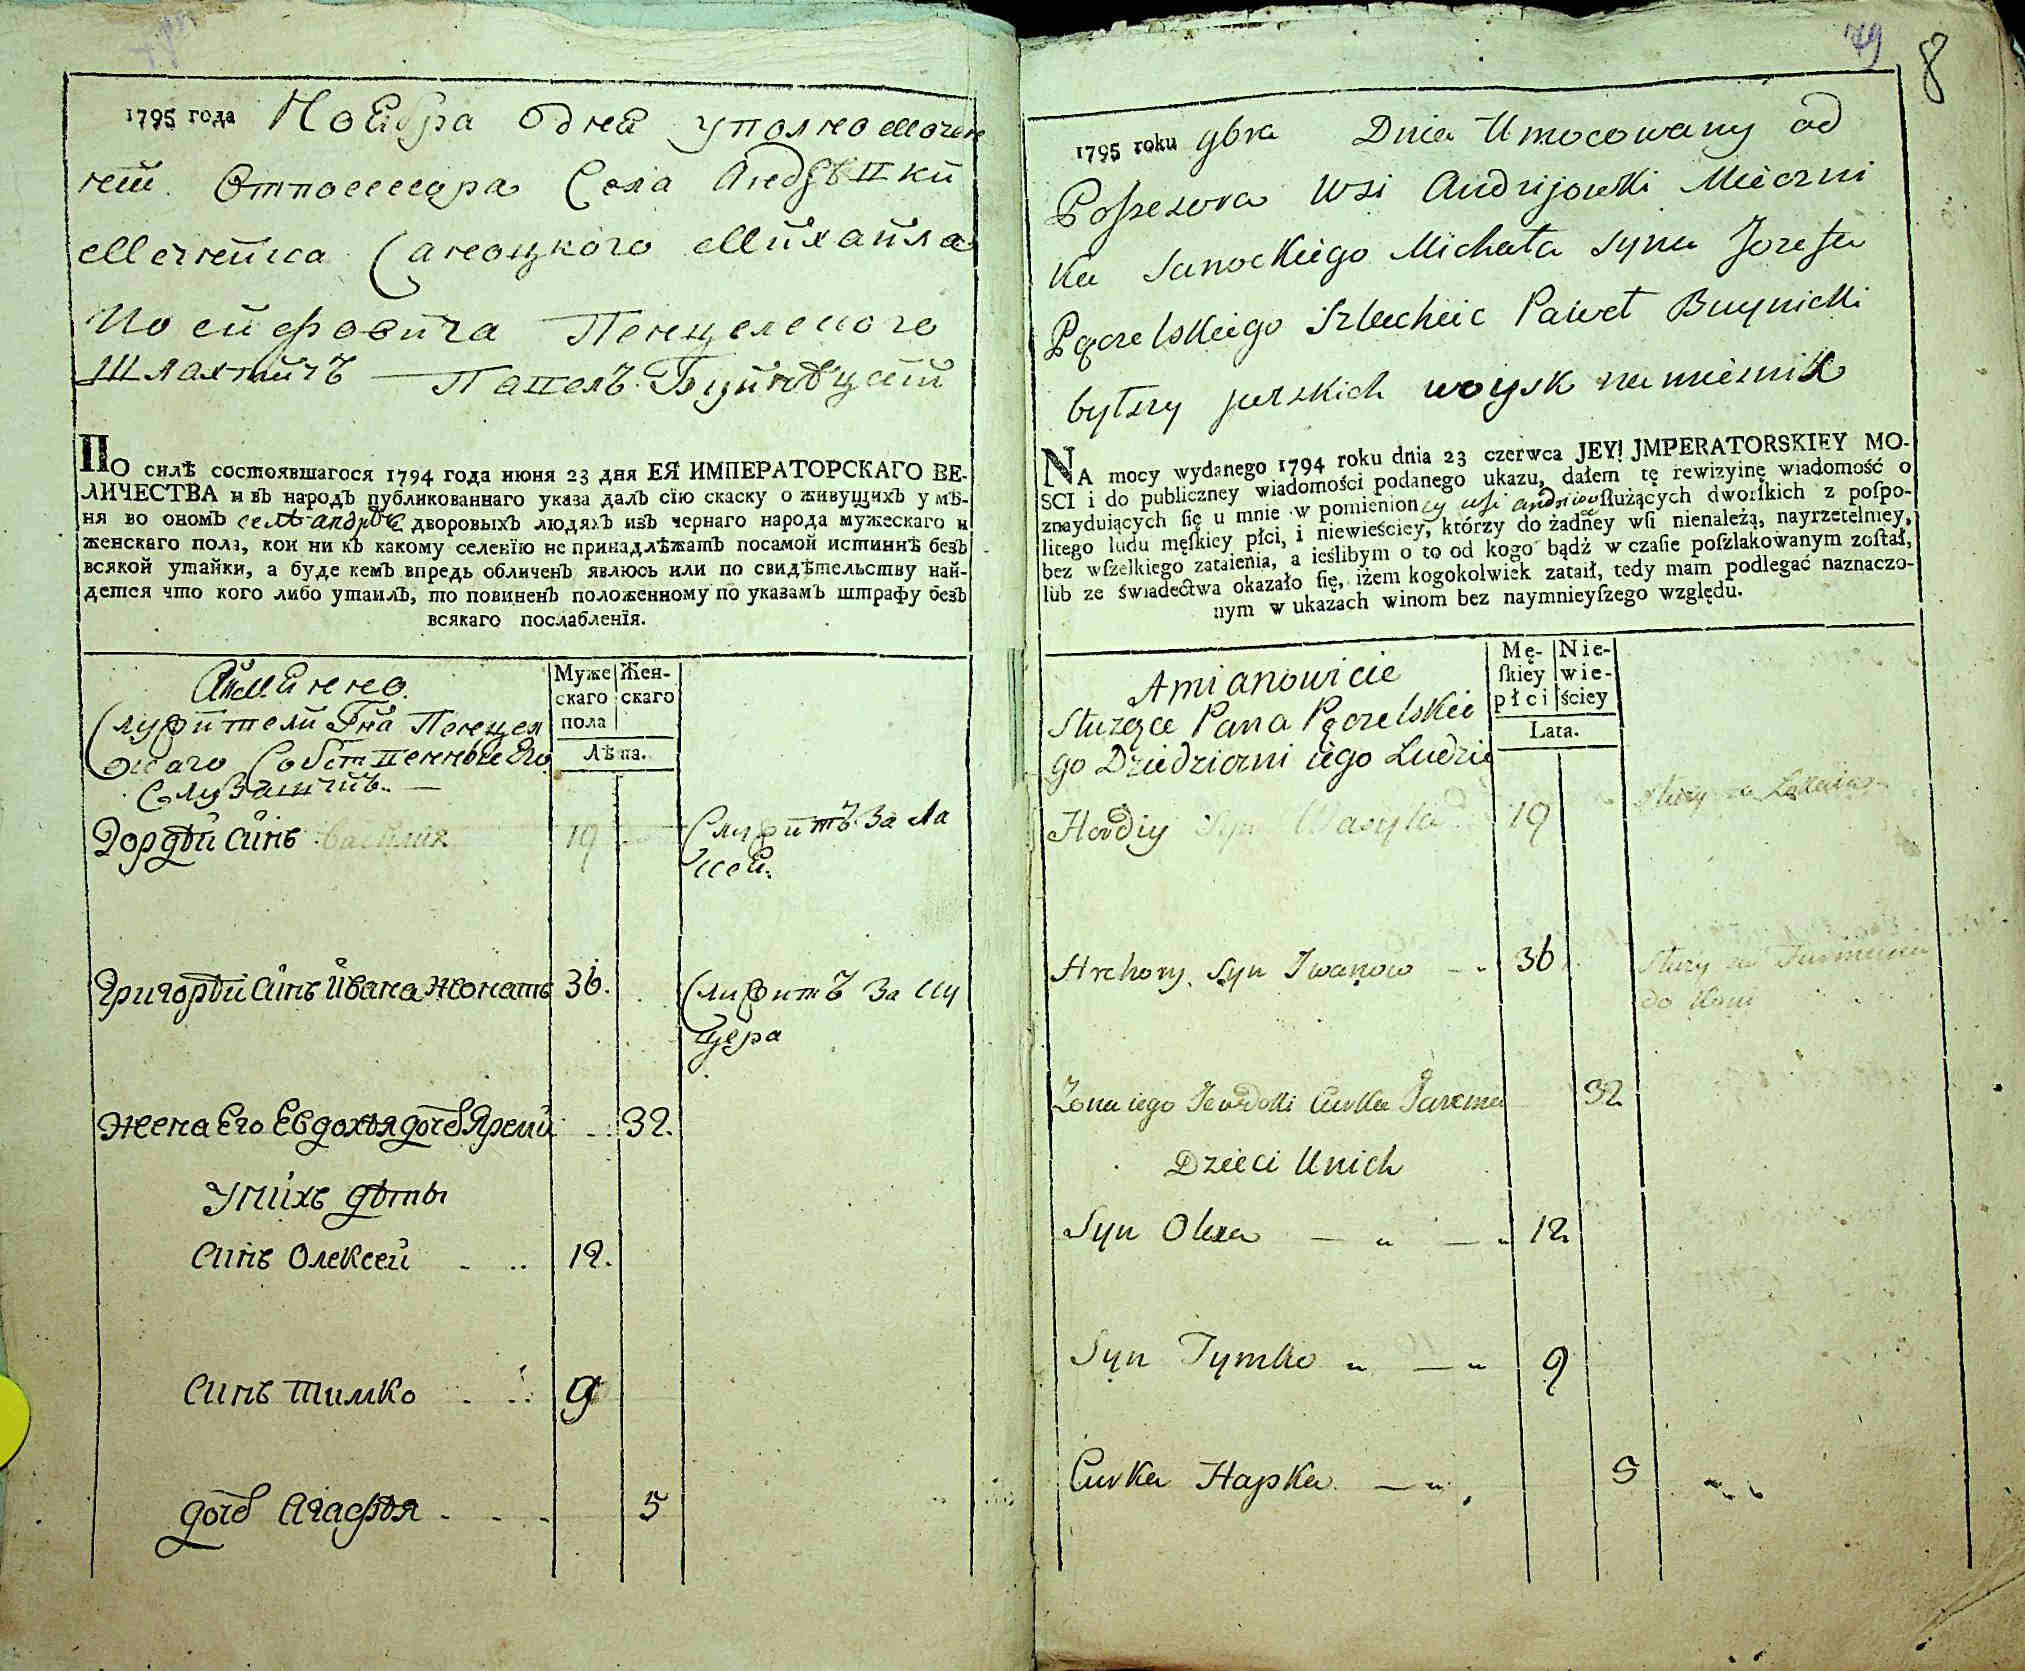 1795 года Ноебра дней уполномочен
ной Отпосессора Села Андрѣевки
Мечника Саноцкого Михайла
Иосифовича Пенцелского
Шляхтичъ — Павелъ Буйнѣцкій
По силѣ состоявшагося 1794 года июня 23 дня ЕЯ ИМПЕРАТОРСКАГО ВЕ-
ЛИЧЕСТВА и въ народъ публикованнаго указа далъ сїю скаску о живущихъ у мѣ-
ня во ономъ селѣ андрѣе дворовыхъ людяхъ изъ чернаго народа мужескаго и
женскаго пола, кои ни къ какому селенїю не принадлѣжатъ посамой истиннѣ безъ
всякой утайки, а буде кемъ впредь обличенъ явлюсь или по свидѣтельству най-
дется что кого либо утаилъ, то повиненъ положенному по указамъ штрафу безъ
всякаго послабленїя.
Аимянно
Служители Гна Пенцел
скаго Собственные Его
Служатъ. —
Муже
скаго
пола
Жен-
скаго
Лѣта.
Гордѣй синъ Василия 19 Служитъ За Ла
кей.
Григорѣй синъ Ивана жонатъ 36. Служитъ За
Жена Его Евдохѣя дочь Яреми 32.
У нихъ дѣты
Синъ Олексей 12.
Синъ Тимко 9
дочь Агафѣя 5
79
8
1795 roku 9bra Dnia Umocowany od
Possesora Wsi Andrijowki Mieczni
ka Sanockiego Michała syna Jozefa
Pęczelskiego Szlachcic Paweł Buynicki
bytszy polskich woysk namiesnik
NA mocy wydanego 1794 roku dnia 23 czerwca JEY! JMPERATORSKIEY MO-
SCI i do publiczney wiadomości podanego ukazu, dałem tę rewizyinę wiadomość o
znayduiących ſię u mnie w pomienioney wsi andriow ſłużących dworſkich z poſpo-
litego ludu męſkiey płci, i niewieściey, którzy do żadney wſi nienależą, nayrzetelniey,
bez wſzelkiego zataienia, a ieślibym o to od kogo bądź w czaſie poſzlakowanym zoſtał,
lub ze świadectwa okazało ſię, iżem kogokolwiek zataił, tedy mam podlegać naznaczo-
nym w ukazach winom bez naymnieyſzego względu.
Amianowicie
Służące Pana Pęczelskie
go Dziedziczni iego Ludzie
Mę-
ſkiey
płci
Nie-
wie-
ściey
Lata.
Hordiy Syn Wasyla 19 służy za Lokaia
Hrehory Syn Iwanow 36 służy za
do Koni
Żona iego Jewdoki Curka Jarema 32
Dzieci Unich
Syn Olexa 12
Syn Tymko 9
Curka Hapka 5